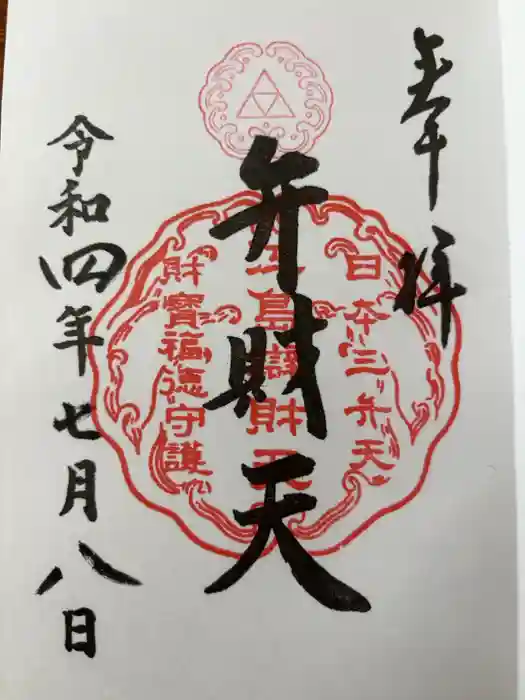 奉拝
日本三弁天
弁財天
島財天
財寶福徳守護
令和四年七月八日